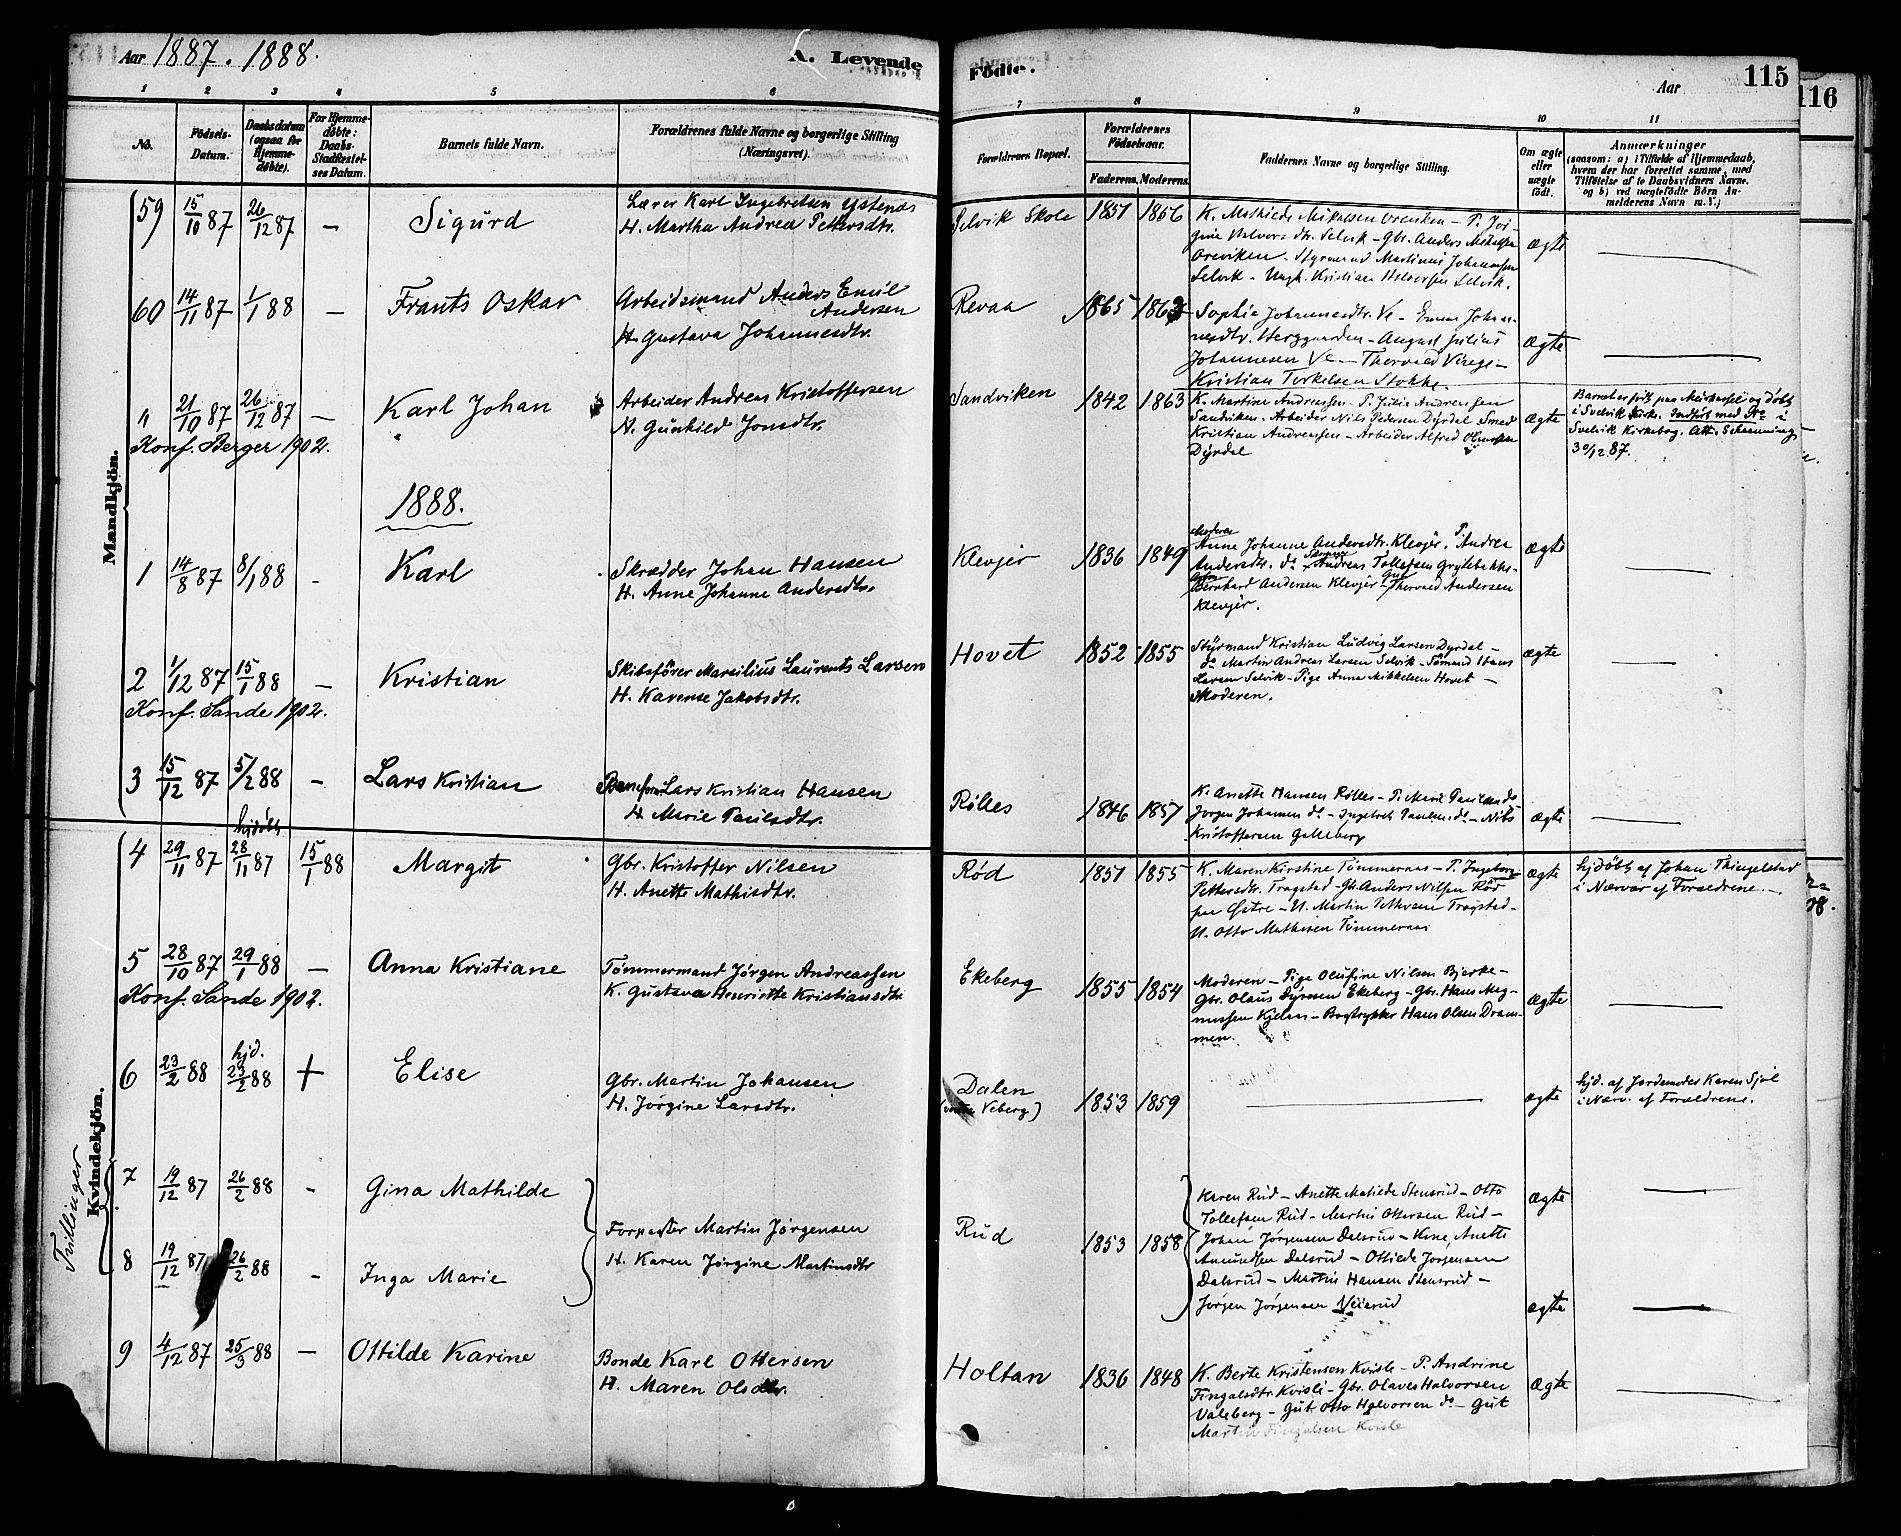 Aar 1887. 1888. A. Levende Fødte. Aar 115
116
1 2 3 4 5 6 7 8 9 10 11
No. Fødsels-Datum. Daabsdatum (ogsaa for Hjemme-døbte). For Hjemme-døbte: Daabs-Stadfæstel-ses Datum. Barnets fulde Navn. Forældrenes fulde Navne og borgerlige Stilling (Næringsvei). Forældrenes Bopæl. Forældrenes Fødselsaar. Faderens. Moderens. Faddernes Navne og borgerlige Stilling. Om ægte eller uægte født. Anmærkninger
(saasom: a) i Tilfælde af Hjemmedaab,
hvem der har forrettet samme, med
Tilføielse af to Daabsvidners Navne.
og b) ved uægtefødte Børn An-
melderens Navn m. V.)
Mandkjön.
59 15/10 87 26/12 87 – Sigurd Lærer Karl Ingebretsen Ystenæs
H. Martha Andrea Pettersdtr. Selvik Skole 1857 1856 K. Mathilde Mikalsen – P. Jor-
gine Halvorsdtr. Selvik – Gbr. Anders
Styrmand Martinus Johannesen
Selvik – Ungk. Kristian Halvorsen Selvik. ægte
60 14/11 87 1/1 88 – Frants Oskar Arbeidsmand Anders Emil
Andersen
H. Gustava Johannesdtr. Revaa 1865 Sophie Johannesdtr. Ve – Emma Johan-
nesdtr. Herggaarden – August Julius
Johannesen Ve – Thorvald
Kristian Torkelsen Stokke. ægte
" 21/10 87 26/12 87 – Karl Johan Arbeider Andreas Kristoffersen
H. Gunhild Jonsdtr. Sandviken 1842 1863 K. Martine Andreassen – P. Julie Andreassen
Sandviken. Arbeider Nils Pedersen Dyrdal Smed
Kristian Andreassen – Arbeider Alfred
Dyrdal ægte døbt
i Svelvik Kirke. Indført med No i
Svelvik Kirkebog. Att.
30/12 87.
Konf. Berger 1902.
1888.
1 14/8 87 8/1 88 – Karl Skrædder Johan Hansen
H. Anne Johanne Andersdtr. Klevjer 1836 1849 Moderen
Anne Johanne Andersdtr. Klevjer. P. Andrea
Andersdtr. do Andreas Tollefsen Grytebekke –
Bernhard Andersen Klevjer – Gut Thorvald Andersen
Klevjer. ægte
2 1/12 87 15/1 88 – Kristian Skibsfører Marsilius Laurents Larsen
H. Karense Jakobsdtr. Hovet 1852 1855 Styrmand Kristian Ludvig Larsen Dyrdal –
do Martin Andreas Larsen Selvik – Sømand Hans
Larsen Selvik – Pige Anna Mikkelsen Hovet –
Moderen. ægte
Konf. Sande 1902.
3 15/12 87 5/2 88 – Lars Kristian Lars Kristian Hansen
H. Marie Paulsdtr. Rølles 1846 1857 K. Anette Hansen Rølles – P. Marie Paulsen do
Jorgen Johannsen do – Ingebret Paulsen do – Nils
Kristoffersen Galleberg ægte
Kvindekjön.
4 29/11 87 hjdøbt 28/11 87 15/1 88 Margit Gbr. Kristoffer Nilsen
H. Anette Mathisdtr. Rød 1857 1855 K. Maren Kirstine Tømmeraas – P. Ingeborg
Pettersdtr. Tragstad – Gbr. Anders Nilsen Rød
paa Østre – U. Martin Tragstad –
U. Otto Mathisen Tømmeraas ægte hjdøbt af Johan Thingelstad
i Nærvær af Forældrene. –
5 28/10 87 29/1 88 – Anna Kristiane Tømmermand Jørgen Andreassen
K. Gustava Henriette Kristiansdtr Ekeberg 1855 1854 Moderen – Pige Olufine Nilsen Bjerke –
Gbr. Olaus Ekeberg – Gbr. Hans Mag-
nussen Kjelaas – Bogtrykker Hans Olsen Dram-
men. ægte
Konf. Sande 1902.
6 23/2 88 hjd. 23/2 88 + Elise Gbr. Martin Johansen
H. Jørgine Larsdtr. Dalen
( Veberg) 1853 1859 ægte hjd. af Jordemoder Karen Sjøl
i Nærv. af Forældrene.
Tvillinger
7 19/12 87 26/2 88 – Gina Mathilde
8 19/12 87 26/2 88 – Inga Marie
Forpagter Martin Jørgensen
H. Karen Jørgine Martinsdtr Rud 1853 1858 Karen Rud – Anette Matilde Stensrud – Otto
Tollefsen Rud – Martin Ottersen Rud –
Johan Jørgensen Dalsrud – Kone Anette
Amundsen Dalsrud – Ottilde Jørgensen
Dalsrud – Martin Hansen Stensrud –
Jørgen Jørgensen Neierud ægte
ægte
9 4/12 87 25/3 88 – Ottilde Karine Bonde Karl Ottersen
H. Maren Olsdtr. Holtan 1836 1848 K. Berte Kristensen Kvisle – P. Andrine
Fingalsdtr. Kvisle – Gbr. Olaves Halvorsen
Valeberg – Gut Otto Halvorsen do – Gut
Martin Fingalsen Kvisle ægte